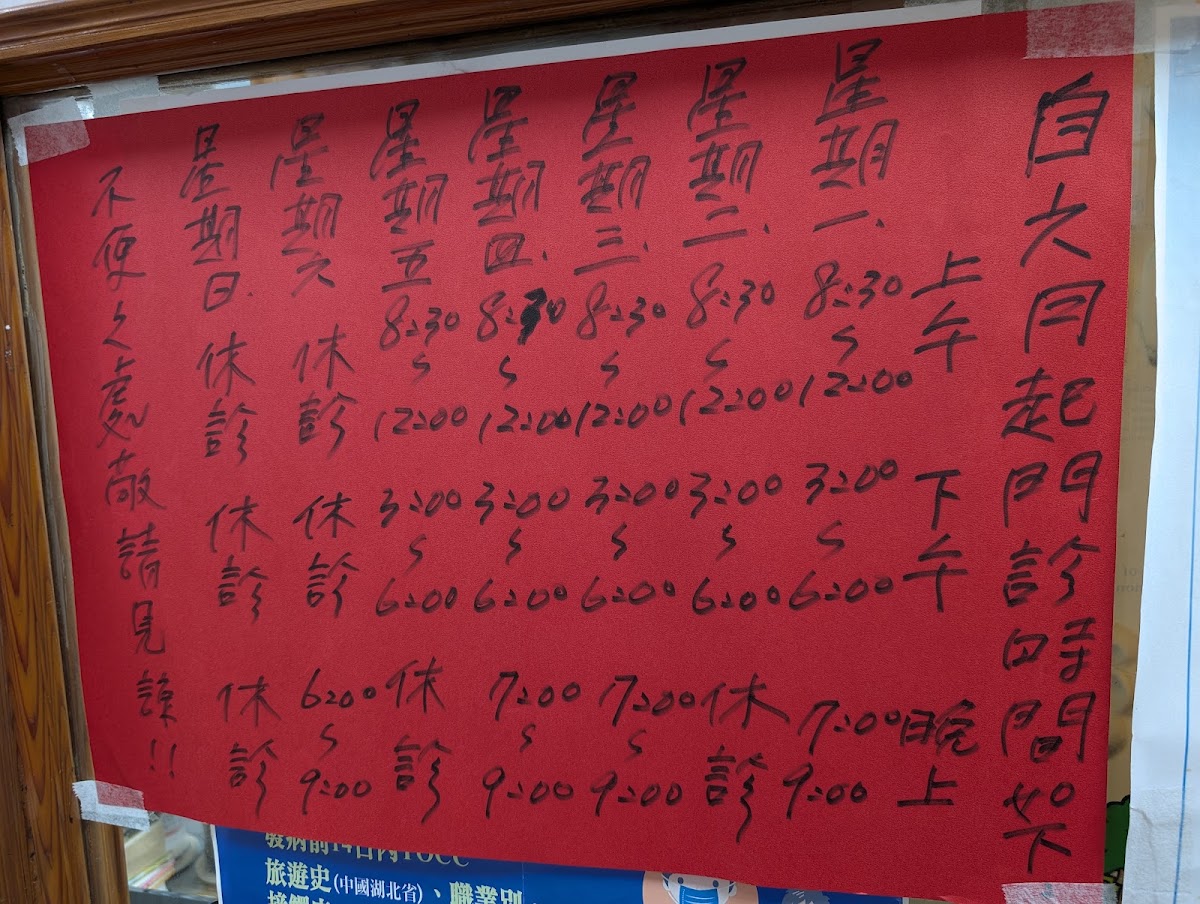 自六月起門診時間如下
上午 下午 晚上
星期一、8:30~12:00 3:00~6:00 7:00 9:00
星期二、8:30~12:00 3:00~6:00 休診
星期三、8:30~12:00 3:00~6:00 7:00~9:00
星期四、8:30~12:00 3:00~6:00 7:00~9:00
星期五 8:30~12:00 3:00~6:00 休診
星期六 休診 休診 6:00~9:00
星期日、休診 休診 休診
不便之處敬請見諒!!
發病前14日內TOCC
旅遊史(中國湖北省)、職業別